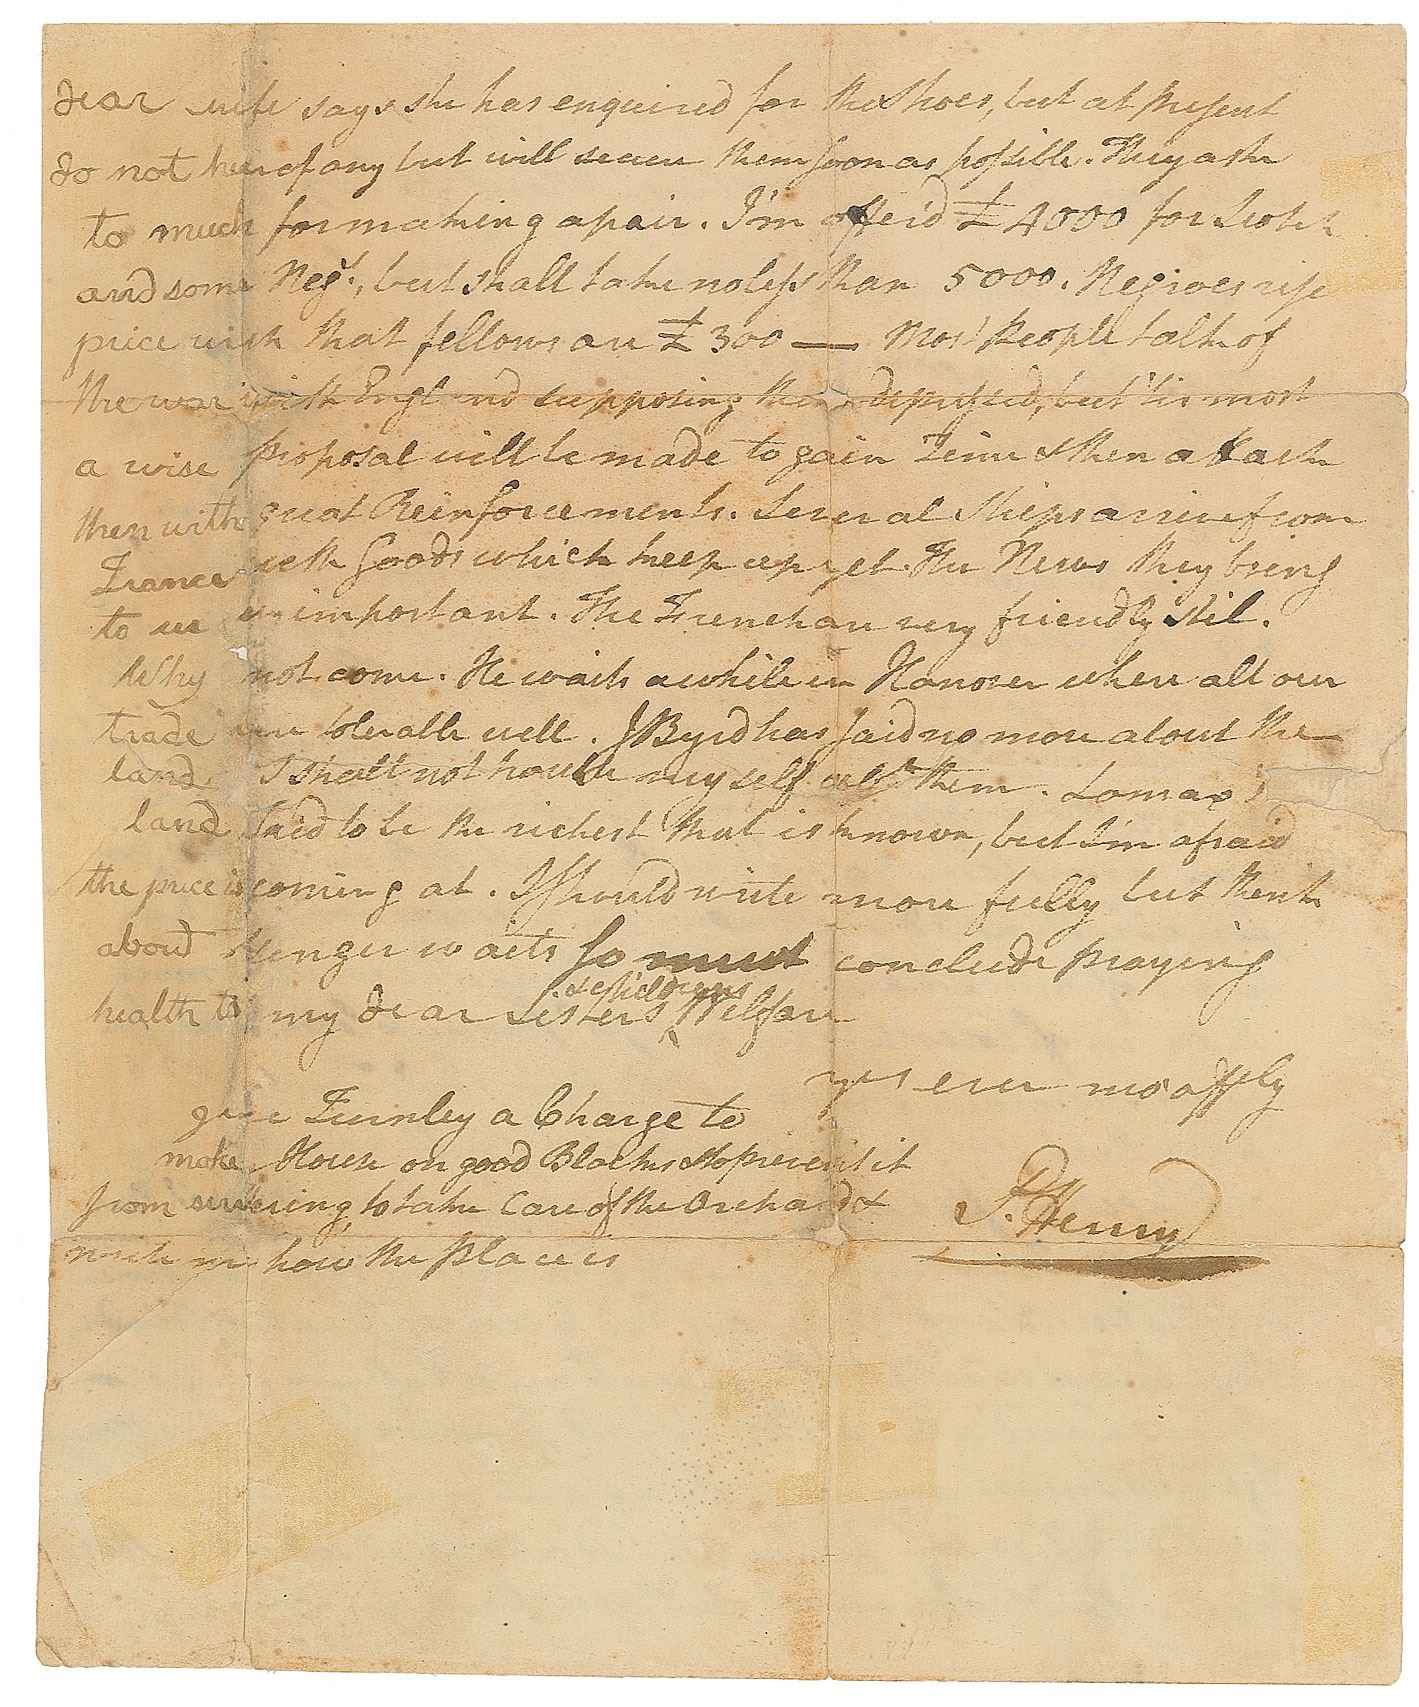 dear wife says she has enquired for the Shoes, but at present
do not hear of any but will secure them soon as possible. They ask
to much for making a pair. I'm offer'd £4000 for Scotch
and some Neg.s, but shall take no less than 5000. Negroes rise
price with that fellows are £300 — Most People talk of
the war with England supposing them depressed, but 'tis most
a wise proposal will be made to gain Time & then attack
then with great Reinforcements. Several Ships arrive from
France with Goods which keep up yet. The News they bring
to us unimportant. The French are very friendly stil.
Why not come. He waits awhile in Hanover where all our
trade are tolerable well. J Byrd has said no more about the
land. I shall not trouble myself abt. them. Lomax's
land said to be the richest that is known, but I'm afraid
the price is coming at. I should write more fully but
about waits so must conclude praying
health to my dear Sister's & childrens Welfare
yrs ever mo affly
give Turnley a Charge to
make House on good Blocks & to prevent it
from to take Care of the Orchard &
write me how the Place is
P. Henry